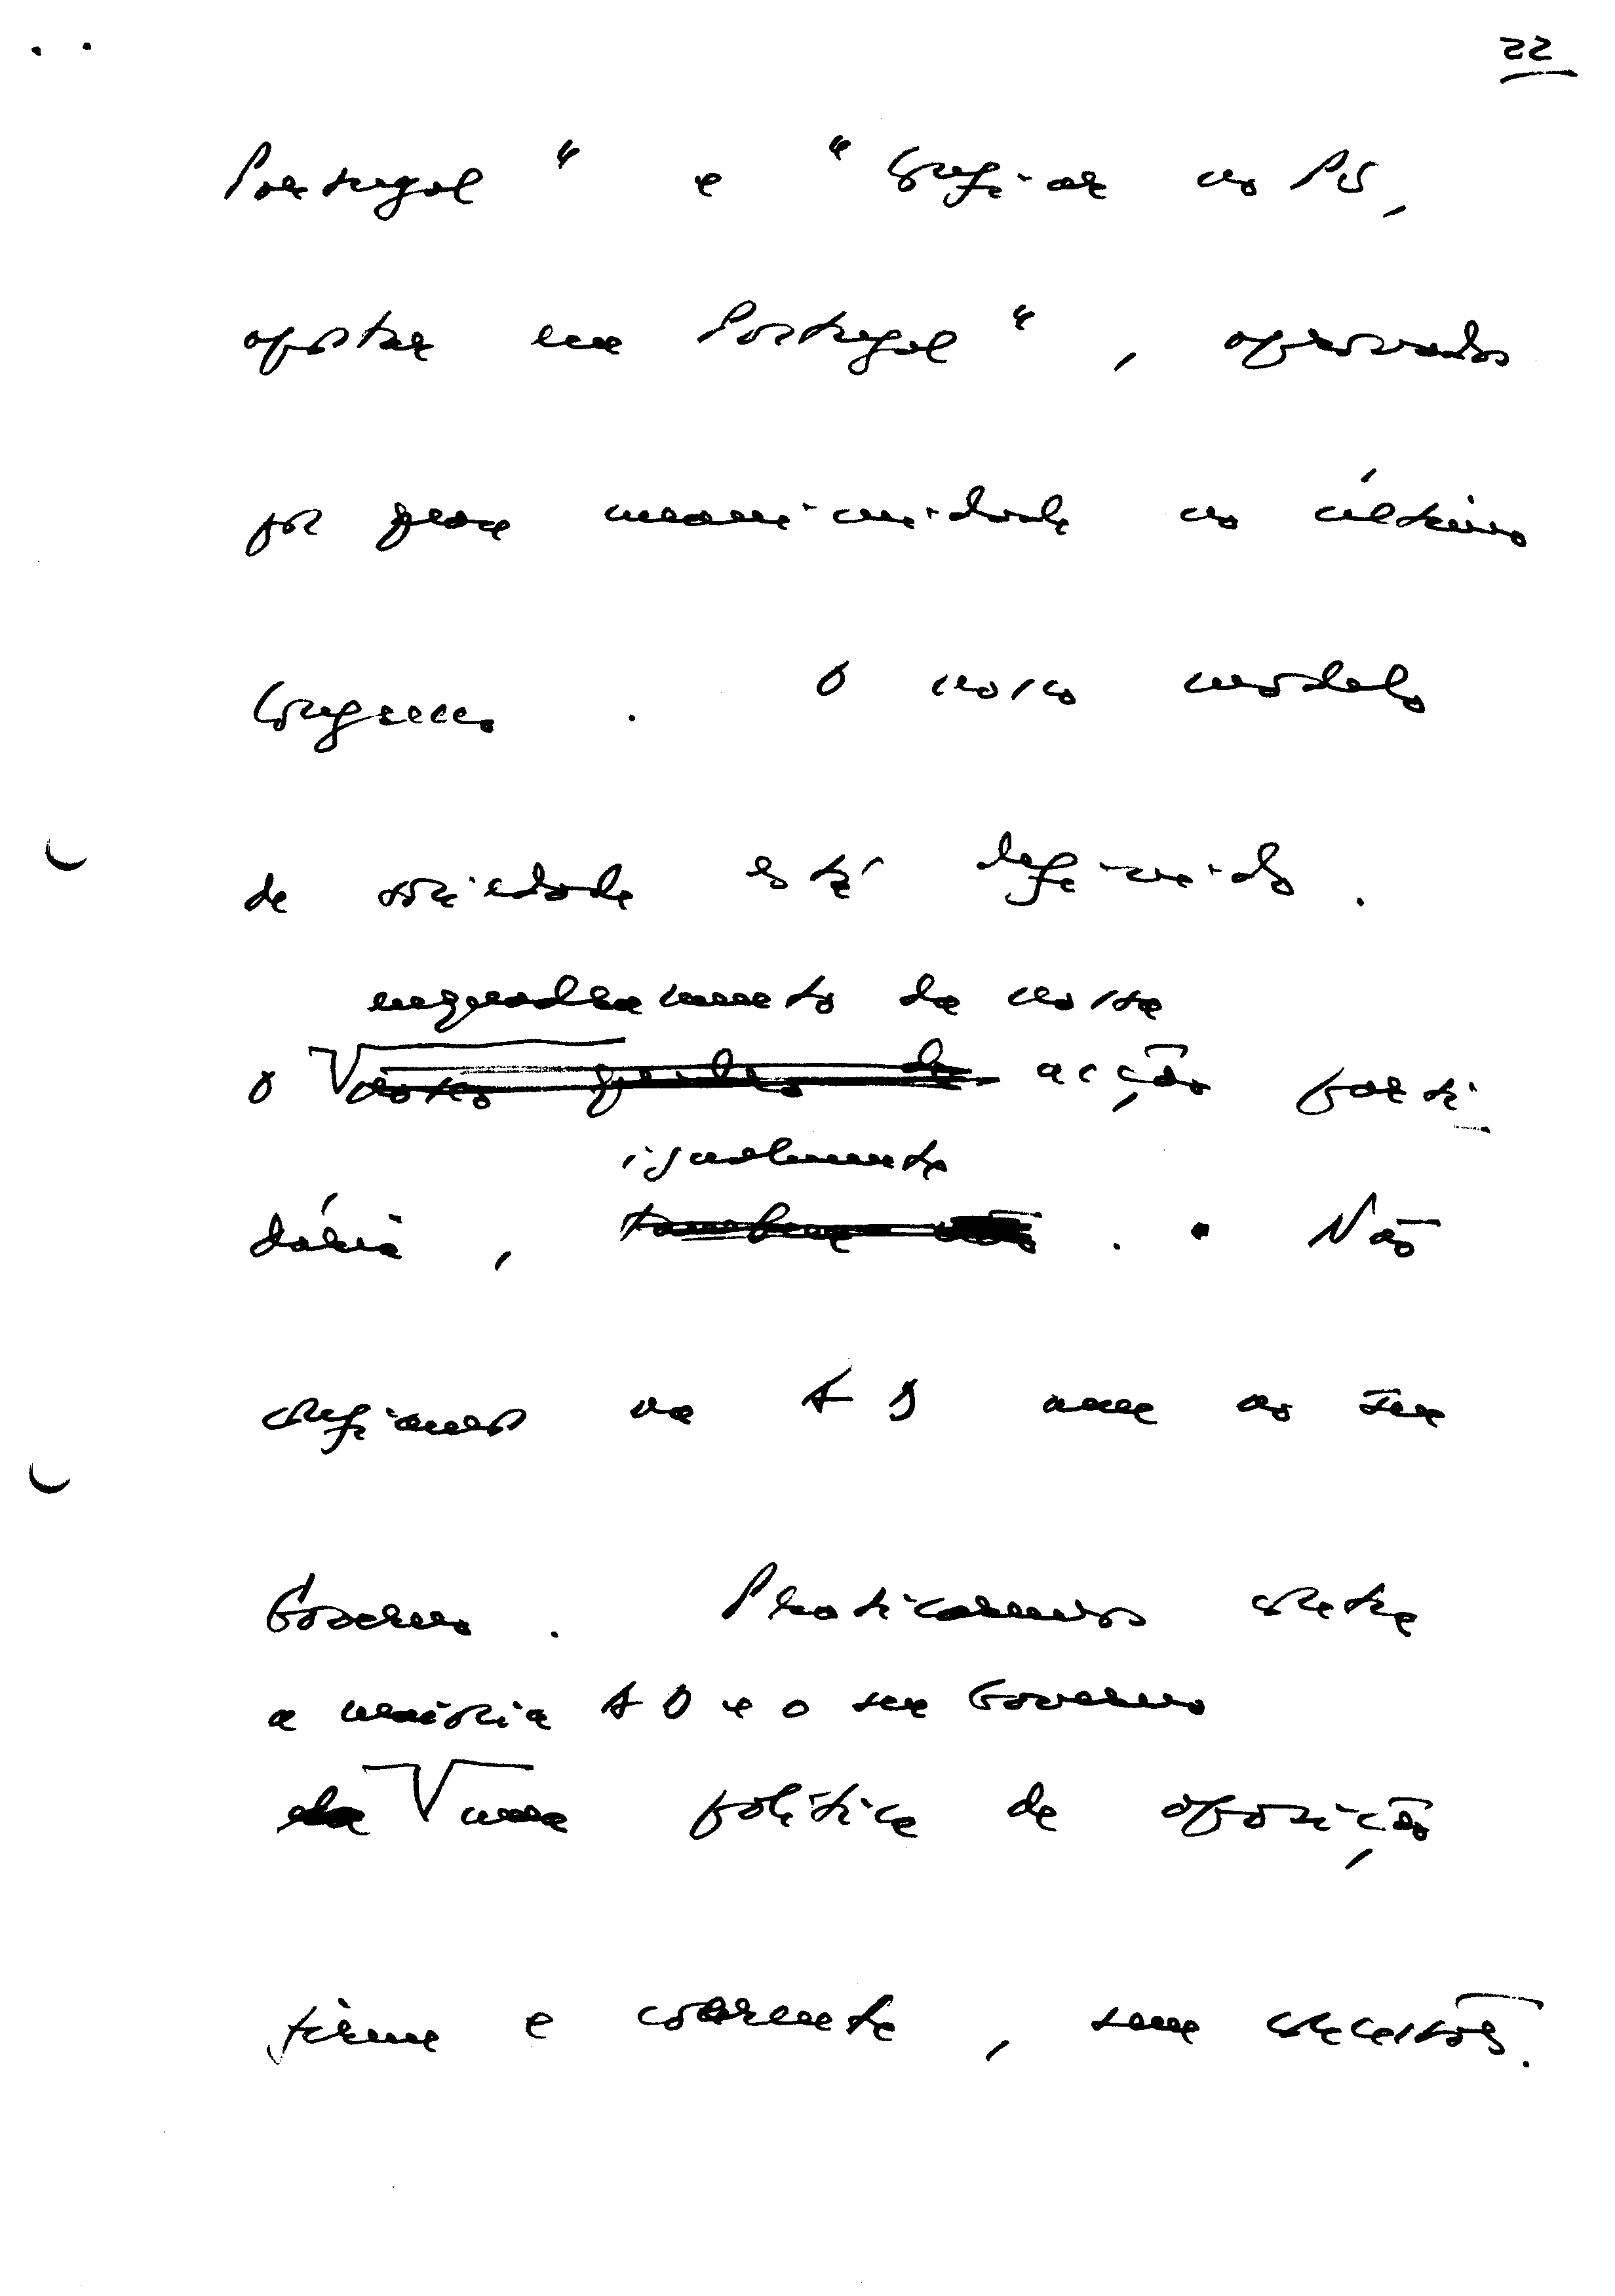 22
Portugal" e "Confiar no PS,
apostar em Portugal", aprovados
por quase unanimidade no último
Congresso. O nosso modelo
de sociedade está definido.
enquadramento da nossa
O acção parti-
igualmente
dária, . Não
confiamos na AD nem no seu
Governo. Praticaremos contra
a maioria AD e o seu Governo
uma política de oposição
firme e coerente, sem concessões.